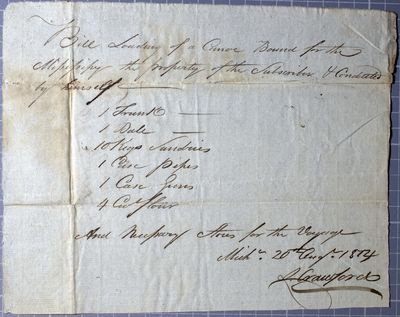 Bill Loading of a Canoe Bound for the
Missisipy the property of the Subscriber & Conducted
by himself
1 Trunk
1 Bale
10 Kegs Sundries
1 Case Pipes
1 Case Guns
4 Cwt flour
And Necessary Stores for the Voyage
Michc. 20th Augt. 1804
Crawford